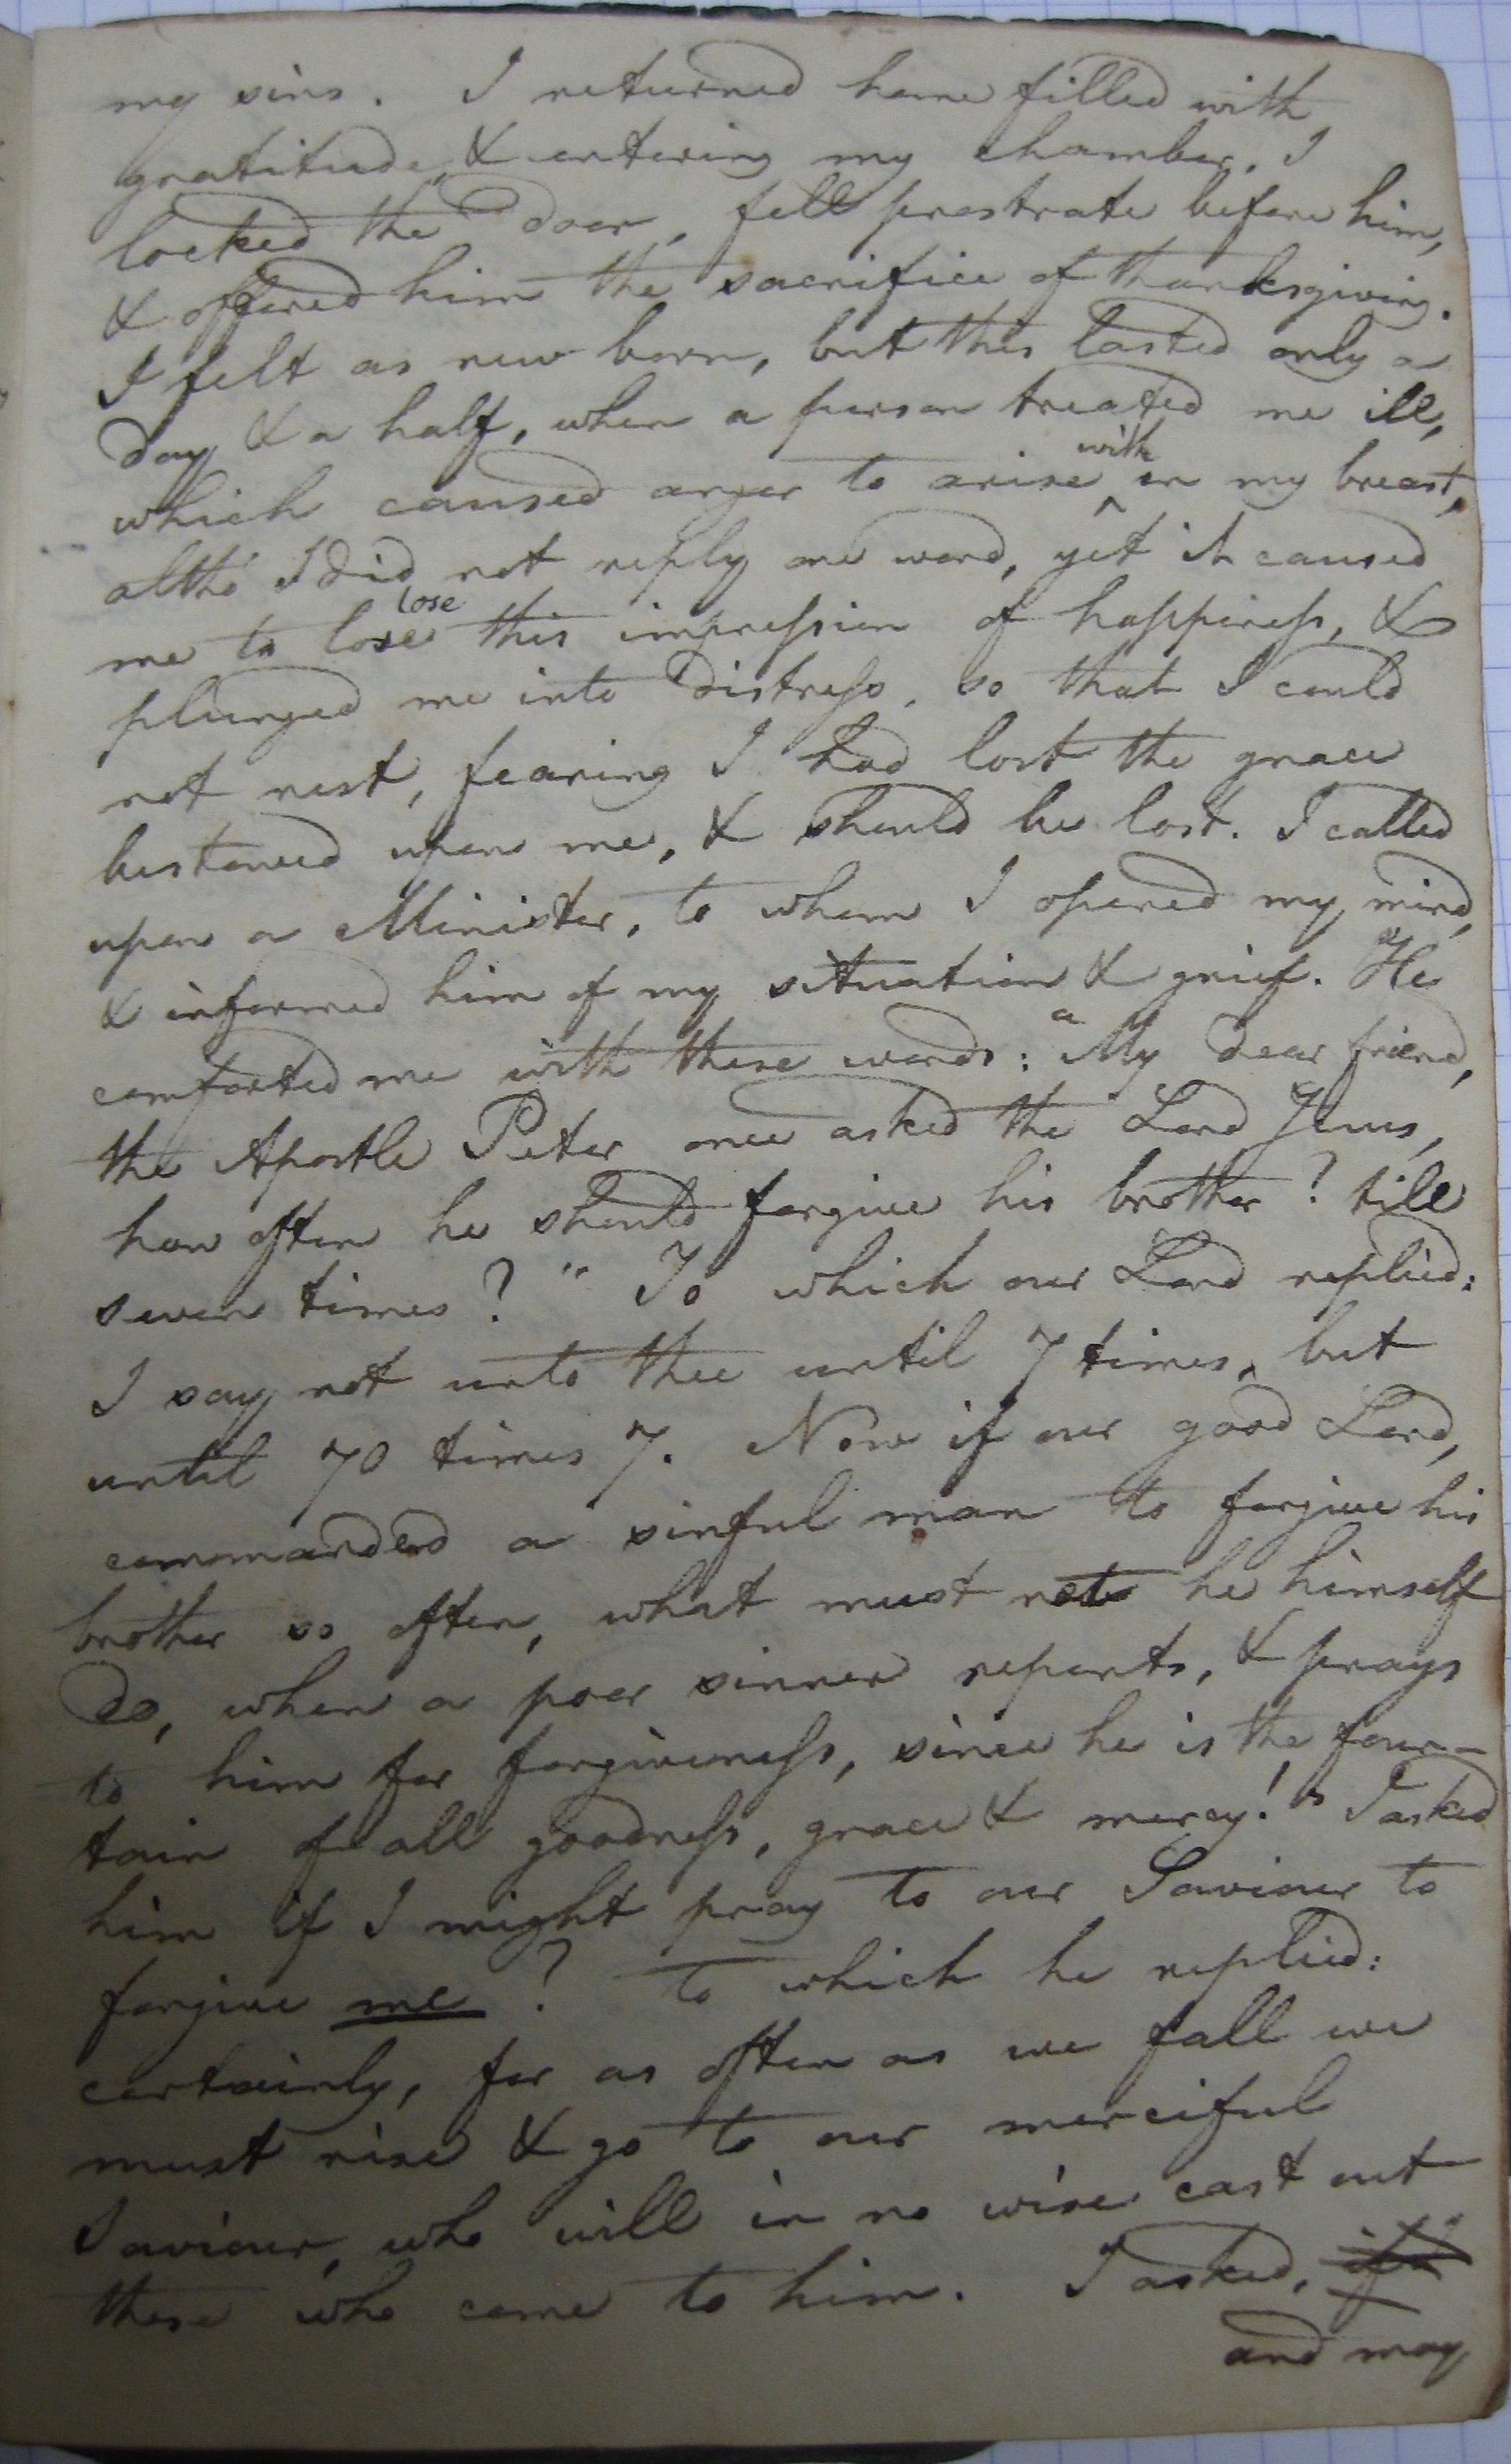 my sins. I returned home filled with
gratitude, & entering my chamber, I
locked the door, fell prostrate before him,
& offered him the sacrifice of thanksgiving.
I felt as new born, but this lasted only a
day & a half, when a person treated me ill,
which caused anger to arise ^with in my breast,
altho' I did not reply one word, yet it caused
me to lose lose this impression of happiness, &
plunged me into distress, so that I could
not rest, fearing I had lost the grace
bestowed upon me, & should be lost. I called
upon a Minister, to whom I opened my mind,
& informed him of my situation & grief. He
comforted me with these words: "My dear friend,
the Apostle Peter once asked the Lord Jesus,
how often he should forgive his brother? till
seven times?" To which our Lord replied:
I say not unto thee until 7 times, but
until 70 times 7. Now if our good Lord,
commanded a sinful man to forgive his
brother so often, what must not he himself
do, when a poor sinner repents, & prays
to him for forgiveness, since he is the foun-
tain of all goodness, grace & mercy!" I asked
him if I might pray to our Saviour to
forgive me? to which he replied:
certainly, for as often as we fall we
must rise & go to our merciful
Saviour, who will in no wise cast out
those who come to him. I asked, if
and may